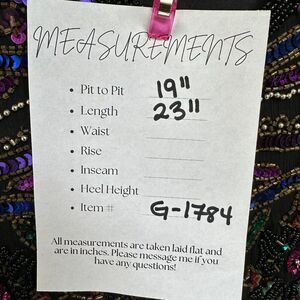 MEASUREMENTS
• Pit to Pit 19"
• Length 23"
• Waist
• Rise
• Inseam
• Heel Height
• Item # G-1784
All measurements are taken laid flat and
are in inches. Please message me if you
have any questions!